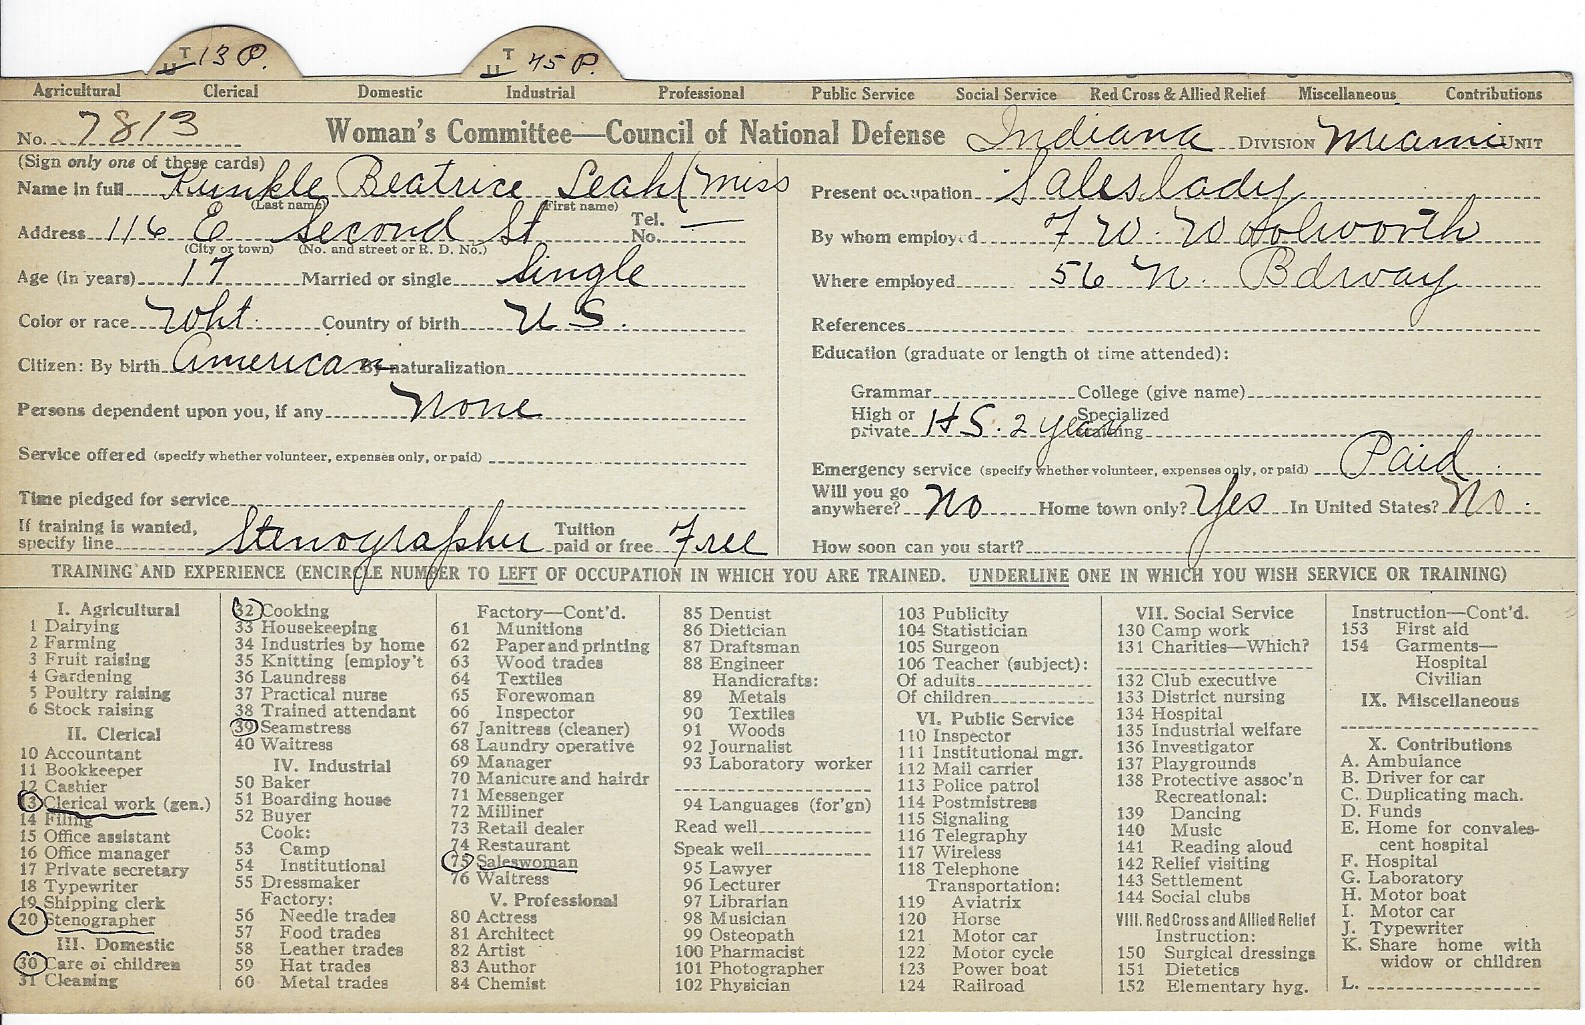 T 13 P.
U
T 75 P.
U
Agricultural Clerical Domestic Industrial Professional Public Service Social Service Red Cross & Allied Relief Miscellaneous Contributions
No. 7813 Woman's Committee—Council of National Defense Indiana DIVISION Miami UNIT
(Sign only one of these cards)
Name in full Kunkle Beatrice Leah (Miss
(Last name) (First name)
Address 116 E Second St Tel. No. —
(City or town) (No. and street or R. D. No.)
Age (in years) 17 Married or single Single
Color or race Wht. Country of birth U S.
Citizen: By birth American By naturalization
Persons dependent upon you, if any None
Service offered (specify whether volunteer, expenses only, or paid)
Time pledged for service
If training is wanted, specify line Stenographer Tuition paid or free Free
Present occupation Saleslady
By whom employed F W. Woolworth
Where employed 56 N. Bdway
References
Education (graduate or length of time attended):
Grammar College (give name)
High or private H S. 2 year Specialized training
Emergency service (specify whether volunteer, expenses only, or paid) Paid
Will you go anywhere? No Home town only? Yes In United States? No.
How soon can you start?
TRAINING AND EXPERIENCE (ENCIRCLE NUMBER TO LEFT OF OCCUPATION IN WHICH YOU ARE TRAINED. UNDERLINE ONE IN WHICH YOU WISH SERVICE OR TRAINING)
I. Agricultural
1 Dairying
2 Farming
3 Fruit raising
4 Gardening
5 Poultry raising
6 Stock raising
II. Clerical
10 Accountant
11 Bookkeeper
12 Cashier
13 Clerical work (gen.)
14 Filing
15 Office assistant
16 Office manager
17 Private secretary
18 Typewriter
19 Shipping clerk
20 Stenographer
III. Domestic
30 Care of children
31 Cleaning
32 Cooking
33 Housekeeping
34 Industries by home
35 Knitting [employ't
36 Laundress
37 Practical nurse
38 Trained attendant
39 Seamstress
40 Waitress
IV. Industrial
50 Baker
51 Boarding house
52 Buyer
Cook:
53 Camp
54 Institutional
55 Dressmaker
Factory:
56 Needle trades
57 Food trades
58 Leather trades
59 Hat trades
60 Metal trades
Factory—Cont'd.
61 Munitions
62 Paper and printing
63 Wood trades
64 Textiles
65 Forewoman
66 Inspector
67 Janitress (cleaner)
68 Laundry operative
69 Manager
70 Manicure and hairdr
71 Messenger
72 Milliner
73 Retail dealer
74 Restaurant
75 Saleswoman
76 Waitress
V. Professional
80 Actress
81 Architect
82 Artist
83 Author
84 Chemist
85 Dentist
86 Dietician
87 Draftsman
88 Engineer
Handicrafts:
89 Metals
90 Textiles
91 Woods
92 Journalist
93 Laboratory worker
94 Languages (for'gn)
Read well
Speak well
95 Lawyer
96 Lecturer
97 Librarian
98 Musician
99 Osteopath
100 Pharmacist
101 Photographer
102 Physician
103 Publicity
104 Statistician
105 Surgeon
106 Teacher (subject):
Of adults
Of children
VI. Public Service
110 Inspector
111 Institutional mgr.
112 Mail carrier
113 Police patrol
114 Postmistress
115 Signaling
116 Telegraphy
117 Wireless
118 Telephone
Transportation:
119 Aviatrix
120 Horse
121 Motor car
122 Motor cycle
123 Power boat
124 Railroad
VII. Social Service
130 Camp work
131 Charities—Which?
132 Club executive
133 District nursing
134 Hospital
135 Industrial welfare
136 Investigator
137 Playgrounds
138 Protective assoc'n
Recreational:
139 Dancing
140 Music
141 Reading aloud
142 Relief visiting
143 Settlement
144 Social clubs
VIII. Red Cross and Allied Relief
Instruction:
150 Surgical dressings
151 Dietetics
152 Elementary hyg.
Instruction—Cont'd.
153 First aid
154 Garments—
Hospital
Civilian
IX. Miscellaneous
X. Contributions
A. Ambulance
B. Driver for car
C. Duplicating mach.
D. Funds
E. Home for convales-
cent hospital
F. Hospital
G. Laboratory
H. Motor boat
I. Motor car
J. Typewriter
K. Share home with
widow or children
L.